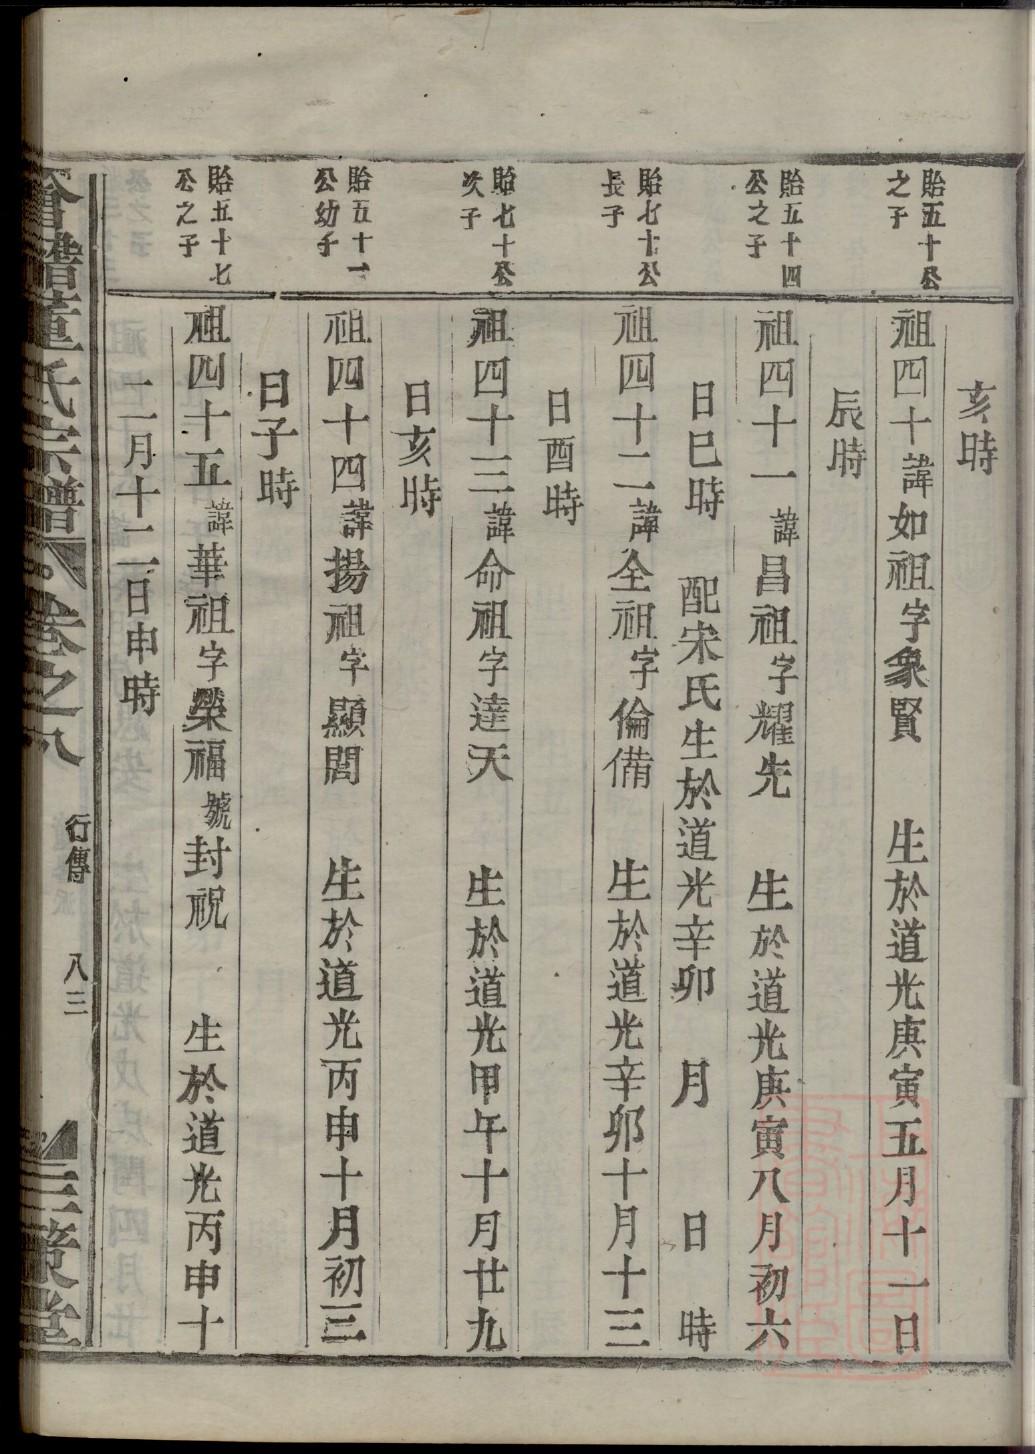 亥時
貽五十公之子
祖四十諱如祖字象賢 生於道光庚寅五月十一日
辰時
貽五十四公之子
祖四十一諱昌祖字耀先 生於道光庚寅八月初六
日巳時 配宋氏生於道光辛卯 月 日 時
貽七十公長子
祖四十二諱全祖字倫備 生於道光辛卯十月十三
日酉時
貽七十公次子
祖四十三諱命祖字達天 生於道光甲午十月廿九
日亥時
貽五十一公幼子
祖四十四諱揚祖字顯閣 生於道光丙申十月初三
日子時
貽五十七公之子
祖四十五諱華祖字榮福號封祝 生於道光丙申十
二月十二日申時
會稽董氏宗譜 卷之八 行傳 八三 三策堂